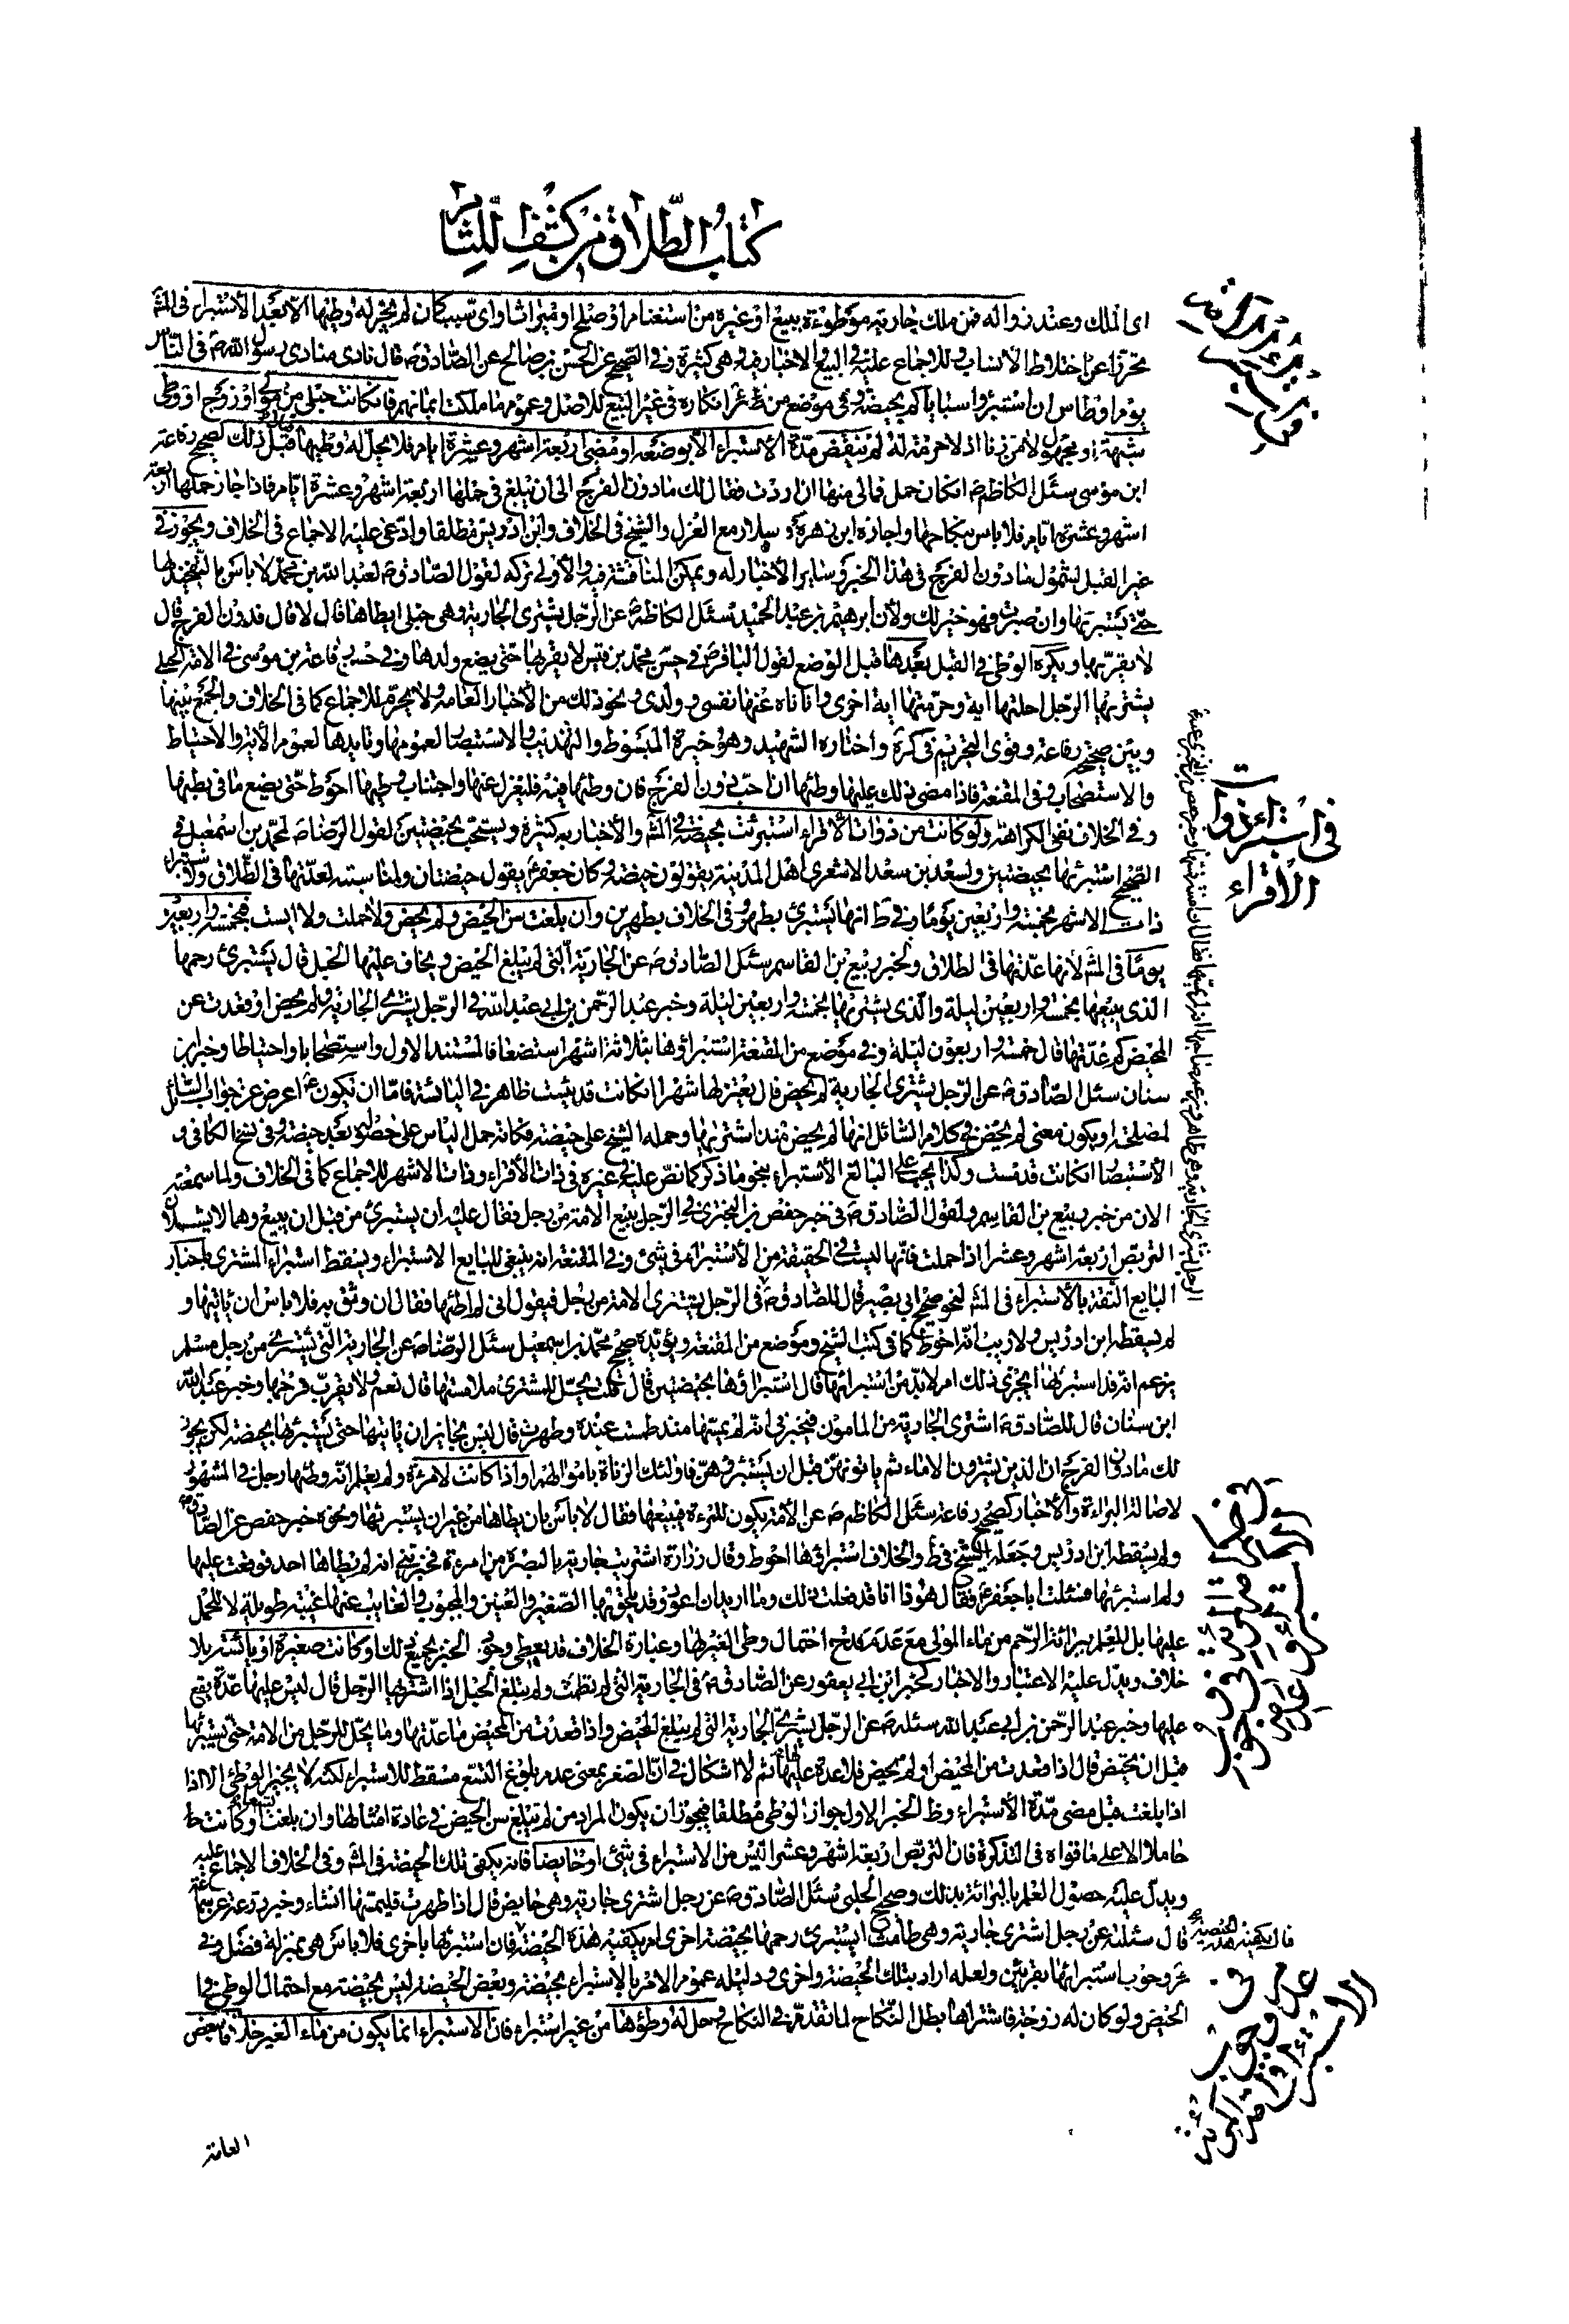 كتاب الطلاق من كشف اللثام
اى الملك وعند زواله فمن ملك جارية موطوءة ببيع او غيره من استغنام او صلح او ميراث او اى سبب كان لم يجز له وطيها الا بعد الاستبراء فى المش
تحرزا عن اختلاط الانساب وللاجماع عليه فى البيع والاخبار فيه وهى كثيرة وفى الصحيح عن الحسن بن صالح عن الصادق ع قال نادى منادى رسول الله ص فى الناس
يوم اوطاس ان استبرؤا سباياكم بحيضة وفى موضع من ط انكاره فى غير البيع للاصل وعموم ما ملكت ايمانهم فان كانت حبلى من مولى او زوج او وطى
شبهة او مجهول لا من زنا اذ لا حرمة له لم ينقض مدة الاستبراء الا بوضعه او مضى اربعة اشهر وعشرة ايام فلا يحل له وطيها قبل ذلك لصحيح رفاعة
ابن موسى سئل الكاظم ع ان كان حمل فمالى منها ان اردت فقال لك ما دون الفرج الى ان تبلغ فى حملها اربعة اشهر وعشرة ايام فاذا جاز حملها اربعة
اشهر وعشرة ايام فلا باس بنكاحها واجازه ابن زهرة وسلار مع العزل والشيخ فى الخلاف وابن ادريس مطلقا وادعى عليه الاجماع فى الخلاف ويجوز فى
غير القبل لشمول ما دون الفرج فى هذا الخبر وساير الاخبار له ويمكن المناقشة فيه والاولى تركه لقول الصادق ع لعبد الله بن محمد لا باس بالتفخيذ لها
حتى يستبرئها وان صبرت فهو خير لك ولان ابرهيم بن عبد الحميد سئل الكاظم ع عن الرجل يشترى الجارية وهى حبلى ايطاها قال لا قال فدون الفرج قال
لا يقربها ويكره الوطى فى القبل بعدها قبل الوضع لقول الباقر ع فى حسن محمد بن قيس لا يقربها حتى يضع ولدها وفى حسن رفاعة بن موسى فى الامة الحبلى
يشتريها الرجل احلتها اية وحرمتها اية اخرى وانا ناه عنها نفسى وولدى ونحو ذلك من الاخبار العامة ولا يحرم للاجماع كما فى الخلاف والجمع بينها
وبين صحيح رفاعة وقوى التحريم فى كره واختاره الشهيد وهو خيرة المبسوط والتهذيب والاستبصار لعمومها وتايدها لعموم الاية والاحتياط
والاستصحاب وفى المقنعة فاذا مضى ذلك عليها وطئها ان احب دون الفرج فان وطئها فيه فليعزل عنها واجتناب وطيها احوط حتى يضع ما فى بطنها
وفى الخلاف نفى الكراهة ولو كانت من ذوات الاقراء استبرئت بحيضة فى المش والاخبار به كثيرة ويستحب بحيضتين لقول الرضا ع لمحمد بن اسمعيل فى
الصحيح استبرئها بحيضتين ولسعد بن سعد الاشعرى اهل المدينة يقولون حيضة وكان جعفر ع يقول حيضتان ولمناسبته لعدتها فى الطلاق واستبراء
ذات الاشهر بخمسة واربعين يوما وفى ط انها يستبرئ بطهر وفى الخلاف بطهرين وان بلغت سن الحيض ولم يحض ولا حملت ولا ايست فبخمسة واربعين
يوما فى المش لانها عدتها فى الطلاق ولخبر ربيع بن القاسم سئل الصادق ع عن الجارية التى لم يبلغ الحيض ويخاف عليها الحبل قال يستبرئ رحمها
الذى يبيعها بخمسة واربعين ليلة والذى يشتريها بخمسة واربعين ليلة وخبر عبد الرحمن بن ابى عبد الله فى الرجل يشترى الجارية ولم يحض او قعدت عن
المحيض كم عدتها قال خمسة واربعون ليلة وفى موضع من المقنعة استبراؤها بثلاثة اشهر استضعافا لمستند الاول واستصحابا واحتياطا وخبر ابن
سنان سئل الصادق ع عن الرجل يشترى الجارية لم يحض قال يعتزلها شهرا ان كانت قد يئست ظاهر فى اليائسة فاما ان تكون ع اعرض عن جواب السائل
لمصلحة او يكون معنى لم يحض فى كلام السائل انها لم يحض منذ اشتريها وحمله الشيخ على حيضة فكانه حمل الياس على حصوله بعد حيضة وفى نسخ الكافى و
الاستبصار ان كانت قد مست وكذا يجب على البائع الاستبراء بنحو ما ذكر كما نص عليه غيره فى ذات الاقراء وذات الاشهر للاجماع كما فى الخلاف ولما سمعته
الان من خبر ربيع بن القاسم ولقول الصادق ع فى خبر حفص بن البخترى فى الرجل يبيع الامة من رجل فقال عليه ان يستبرئ من قبل ان يبيع وهما لا يشملان
التربص اربعة اشهر وعشرا اذا حملت فانها ليست فى الحقيقة من الاستبراء فى شئ وفى المقنعة انه ينبغى للبايع الاستبراء ويسقط استبراء المشترى باخبار
البايع الثقة بالاستبراء فى المش لنحو صحيح ابى بصير قال للصادق ع فى الرجل يشترى الامة من رجل فيقول انى لم اطئها فقال ان وثق به فلا باس ان ياتيها و
لم يسقطه ابن ادريس ولا ريب انه احوط كما فى كتب الشيخ وموضع من المقنعة ويؤيده صحيح محمد بن اسمعيل سئل الرضا ع عن الجارية التى تشترى من رجل مسلم
يزعم انه قد استبرئها ايجزى ذلك ام لا بد من استبرائها قال استبراؤها بحيضتين قال قلت يحل للمشترى ملامستها قال نعم ولا يقرب فرجها وخبر عبد الله
ابن سنان قال للصادق ع اشترى الجارية من المامون فيخبرنى انه لم يمسها منذ طمثت عنده وطهرت قال ليس بجايز ان ياتيها حتى يستبرئها بحيضة لكن يجوز
لك ما دون الفرج ان الذين يشترون الاماء ثم ياتونهن قبل ان يستبرؤهن فاولئك الزناة باموالهم او اذا كانت لامرئة ولم يعلم انه وطئها رجل فى المشهور
لاصالة البراءة والاخبار كصحيح رفاعة سئل الكاظم ع عن الامة يكون للمرءة فيبيعها فقال لا باس بان يطاها من غير ان يستبرئها ونحوه خبر حفص عن الصادق ع
ولم يسقطه ابن ادريس وجعله الشيخ فى ط والخلاف استبراؤها احوط وقال زرارة اشتريت جارية بالبصرة من امرءة فخبرتنى انه لم يطاها احد فوقعت عليها
ولم استبرئها فسئلت ابا جعفر ع فقال هو ذا انا قد فعلت ذلك وما اريد ان اعود وقد يلحق بها الصغير والعنين والمجبوب والغايب عنها غيبة طويلة لا يحتمل
عليها بل للعلم ببرائة الرحم من ماء المولى مع عدم قدح احتمال وطى الغير لها وعبارة الخلاف قد يعطى وجود الخبر بجميع ذلك او كانت صغيرة او يائسة بلا
خلاف ويدل عليه الاعتبار والاخبار كخبر ابن ابى يعفور عن الصادق ع فى الجارية التى لم تطمث ولم يبلغ الحبل اذا اشتراها الرجل قال ليس عليها عدة يقع
عليها وخبر عبد الرحمن بن ابى عبد الله سئله ع عن الرجل يشترى الجارية التى لم يبلغ المحيض واذا قعدت من المحيض ما عدتها وما يحل للرجل من الامة حتى يستبرئها
قبل ان يحيض قال اذا قعدت من المحيض او لم يحض فلا عدة عليها ثم لا اشكال فى ان الصغر بمعنى عدم بلوغ التسع مسقط للاستبراء لكنه لا يجيز الوطئ الا اذا
اذا بلغت قبل مضى مدة الاستبراء وظ الخبر الاول جواز الوطى مطلقا فيجوز ان يكون المراد من لم يبلغ سن الحيض فى عادة امثالها وان بلغت او كانت
حاملا الا على ما قواه فى التذكرة فان التربص اربعة اشهر وعشرا ليس من الاستبراء فى شئ او حايضا فانه يكفى تلك الحيضة فى المش وفى الخلاف الاجماع عليه
ويدل عليه حصول العلم بالبرائة بذلك وصحيح الحلبى سئل الصادق ع عن رجل اشترى جارية وهى حايض قال اذا طهرت فليمسها ان شاء وخبر زرعة عن سماعة
قال سئلته عن رجل اشترى جارية وهى طامث ايستبرئ رحمها بحيضة اخرى ام يكفيه هذه الحيضة فان استبرئها باخرى فلا باس هى بمنزلة فضل وفى
ئر وجوب استبرائها بقرئين ولعله اراد بتلك الحيضة واخرى ودليله عموم الامر بالاستبراء بحيضة وبعض الحيضة ليس بحيضة مع احتمال الوطى فى
الحيض ولو كان له زوجة فاشتراها بطل النكاح لما تقدم فى النكاح وحل له وطؤها من غير استبراء فان الاستبراء انما يكون من ماء الغير خلافا لبعض
العامة
فى استبراء ذوات الاقراء